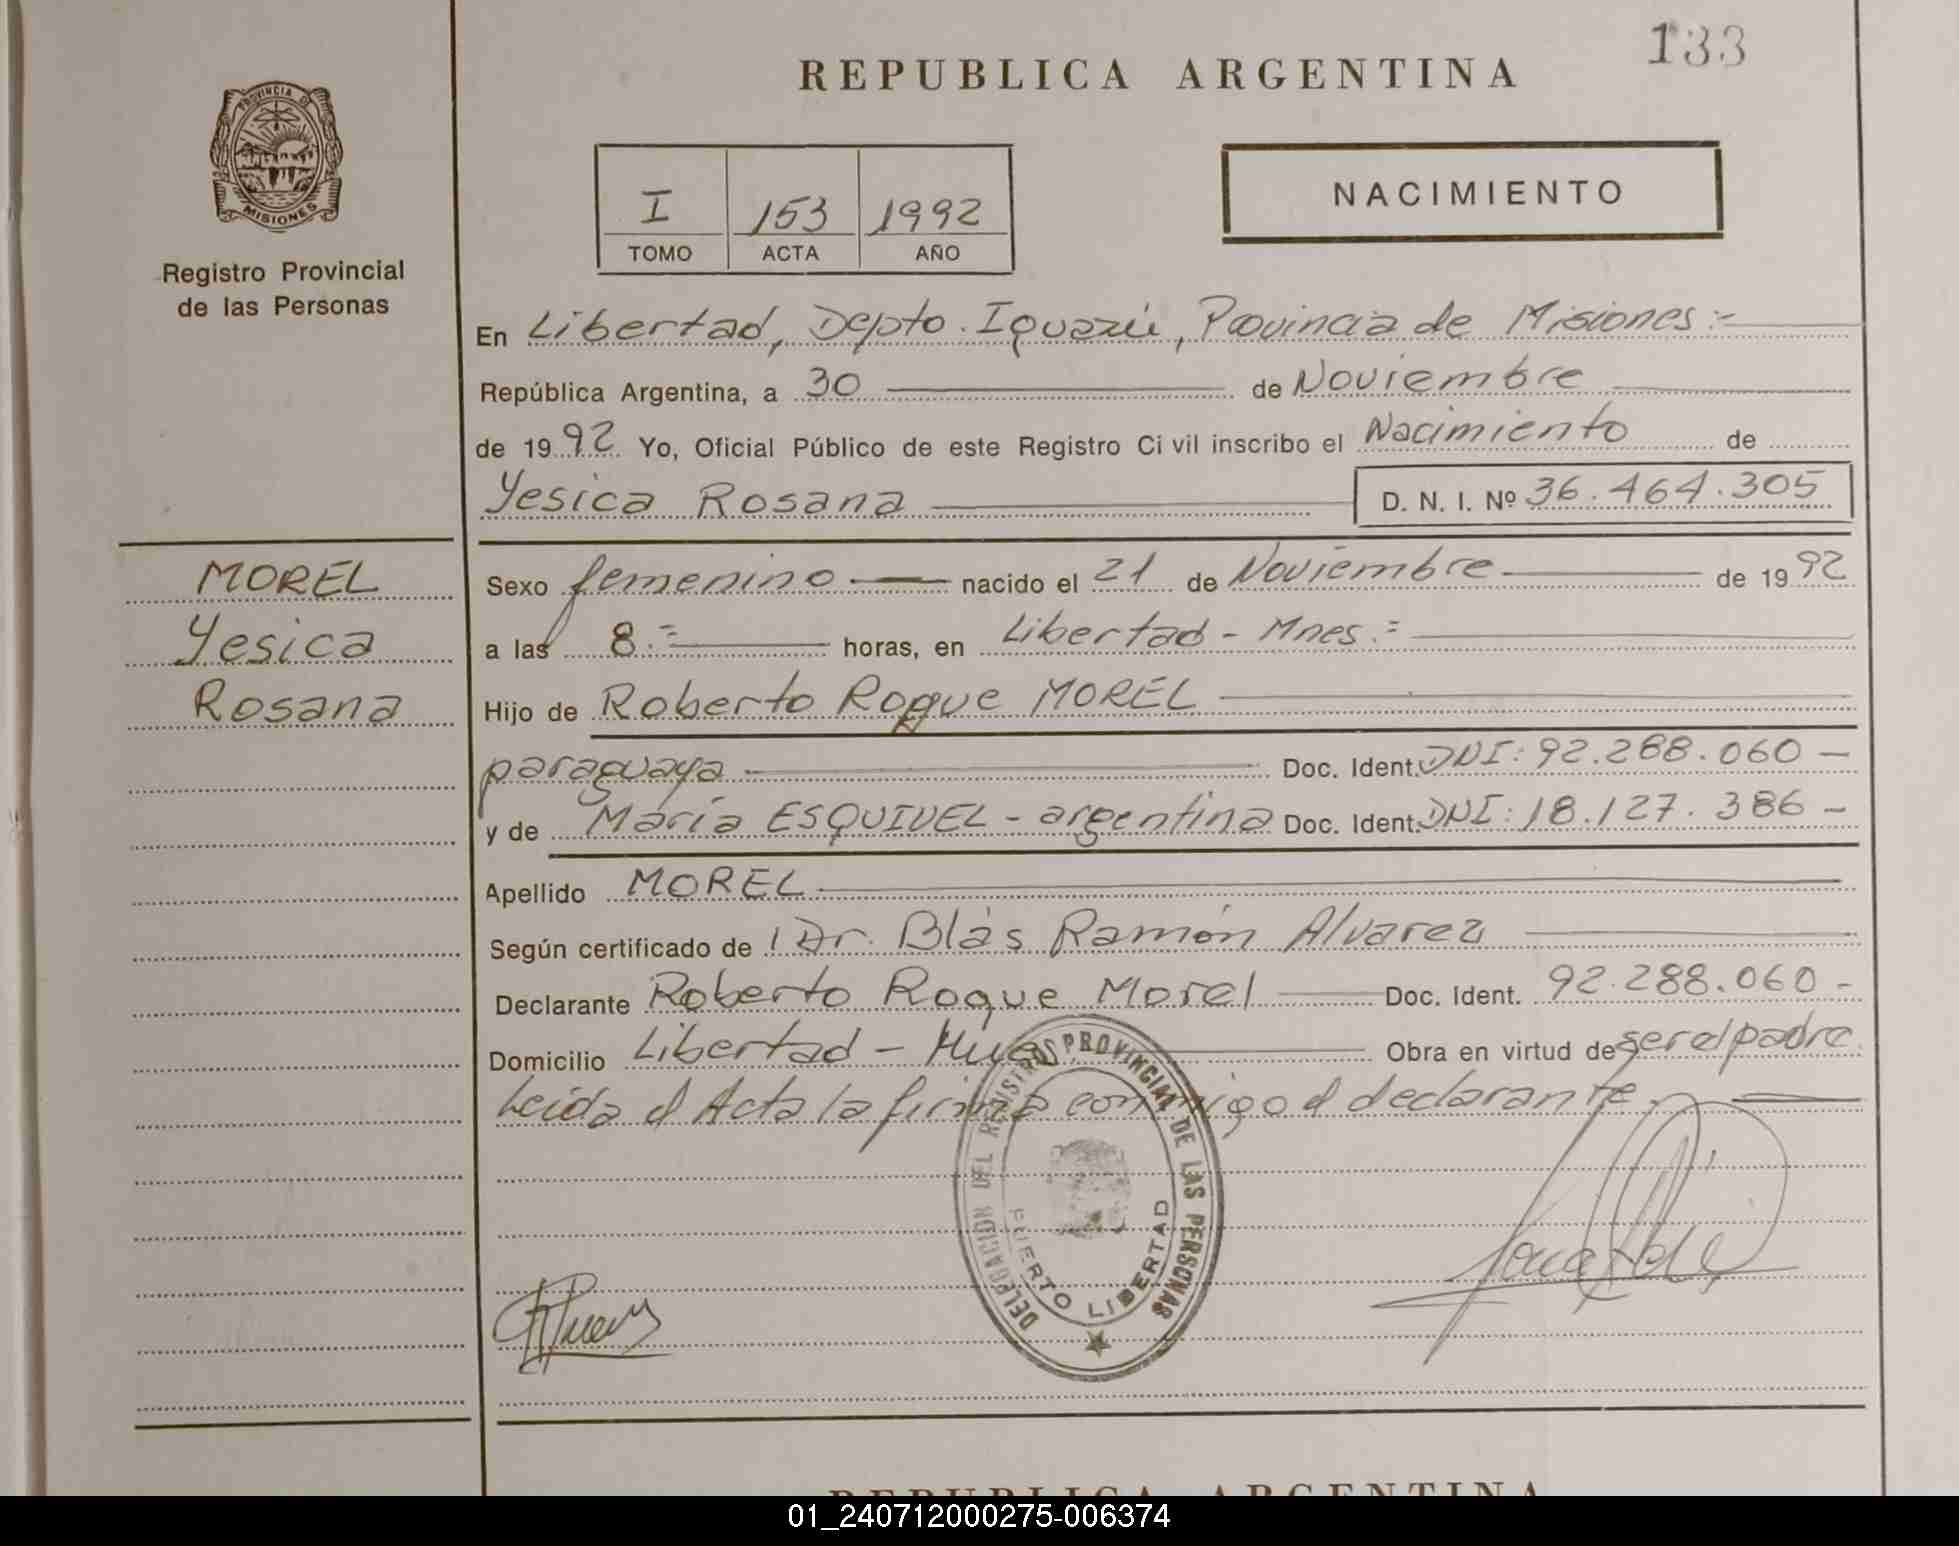 133
REPUBLICA ARGENTINA
PROVINCIA DE
MISIONES
Registro Provincial
de las Personas
I 153 1992
TOMO ACTA AÑO
NACIMIENTO
En Libertad, Depto. Iguazú, Provincia de Misiones:-
República Argentina, a 30 de Noviembre
de 1992 Yo, Oficial Público de este Registro Civil inscribo el Nacimiento de
Yesica Rosana D. N. I. Nº 36.464.305
MOREL
Yesica
Rosana
Sexo femenino nacido el 21 de Noviembre de 1992
a las 8.= horas, en Libertad - Mnes.=
Hijo de Roberto Roque MOREL
paraguaya Doc. Ident. DNI: 92.288.060 -
y de María ESQUIVEL - argentina Doc. Ident. DNI: 18.127.386 -
Apellido MOREL
Según certificado de Dr. Blás Ramón Alvarez
Declarante Roberto Roque Morel Doc. Ident. 92.288.060 -
Domicilio Libertad - Obra en virtud de ser el padre
Leída el Acta la firma conmigo el declarante
DELEGACION DEL REGISTRO PROVINCIAL DE LAS PERSONAS
PUERTO LIBERTAD
REPUBLICA ARGENTINA
01_240712000275-006374